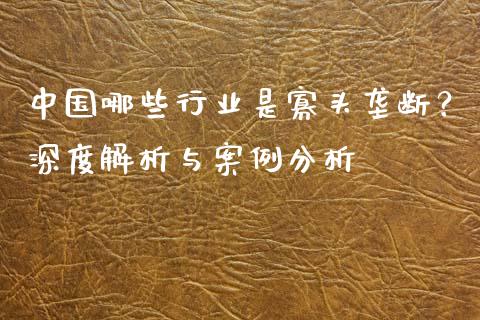 中国哪些行业是寡头垄断?
深度解析与案例分析